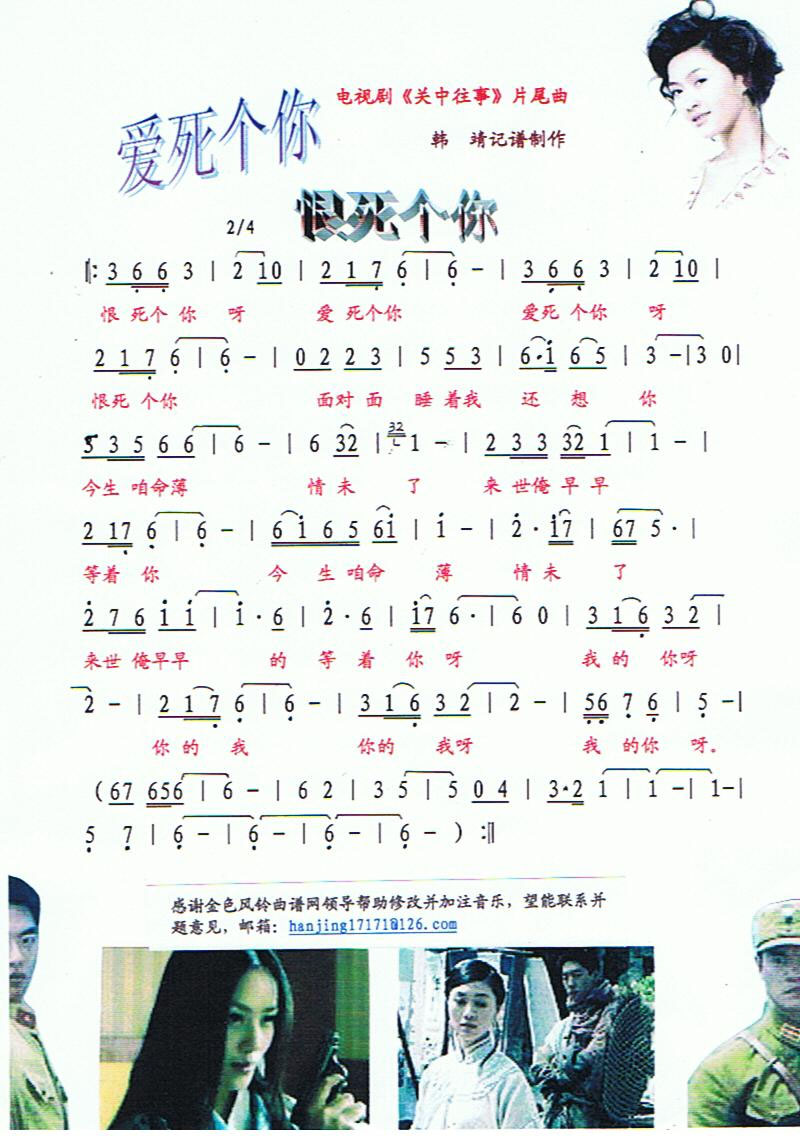 电视剧《关中往事》片尾曲
爱死个你
韩　靖记谱制作
恨死个你
2/4
‖: 3 6 6 3 | 2 1 0 | 2 1 7 6 | 6 - | 3 6 6 3 | 2 1 0 |
恨 死个 你 呀 爱 死个你 爱死 个你 呀
2 1 7 6 | 6 - | 0 2 2 3 | 5 5 3 | 6·1 6 5 | 3 - | 3 0 |
恨死 个你 面对 面 睡 着我 还 想 你
5 3 5 6 6 | 6 - | 6 32 | 32 1 - | 2 3 3 32 1 | 1 - |
今生 咱命薄 情 未 了 来 世俺 早 早
2 17 6 | 6 - | 6 1 6 5 61 | 1 - | 2· 17 | 67 5· |
等着 你 今 生 咱命 薄 情 未 了
2 7 6 1 1 | 1· 6 | 2· 6 | 17 6· | 6 0 | 3 1 6 3 2 |
来世 俺早早 的 等 着 你 呀 我 的 你呀
2 - | 2 1 7 6 | 6 - | 3 1 6 3 2 | 2 - | 56 7 6 | 5 - |
你 的 我 你的 我呀 我 的你 呀。
( 67 656 | 6 - | 6 2 | 3 5 | 5 0 4 | 3·2 1 | 1 - | 1 - |
5 7 | 6 - | 6 - | 6 - | 6 - ) :‖
感谢金色风铃曲谱网领导帮助修改并加注音乐，望能联系并
题意见，邮箱：hanjing17171@126.com